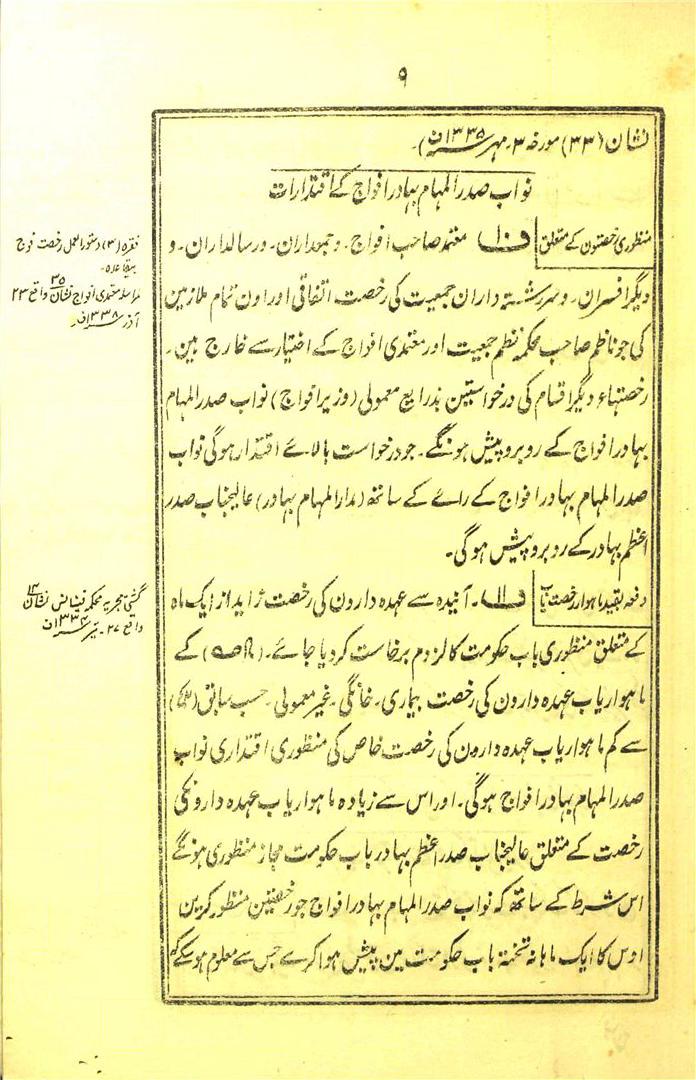 ۹
نشان (۳۳) مورخہ ۳۔ مہر ۱۳۳۵ف)۔
نواب صدر المہام بہادر افواج کے اقتدارات
منظوری رخصتون کے متعلق
ف۱۰ معتمد صاحب افواج۔ و جمعداران۔ ورسالداران۔ و
دیگر افسران۔ وسررشتہ داران جمعیت کی رخصت اتفاقی اور اون تمام ملازمین
کی جو ناظم صاحب محکمہ نظم جمعیت اور معتمدی افواج کے اختیار سے خارج ہین۔
رخصتہاء دیگر اقسام کی درخواستین بذرایع معمولی (وزیر افواج) نواب صدر المہام
بہادر افواج کے روبرو پیش ہونگے۔ جو درخواست بالائے اقتدار ہوگی نواب
صدر المہام بہادر افواج کے رائے کے ساتھ (مدار المہام بہادر) عالیجناب صدر
اعظم بہادر کے روبرو پیش ہوگی۔
فقرہ (۳) دستور العمل رخصت فوج
بیقاعدہ۔
مراسلہ معتمدی افواج نشان ۳۵ واقع ۲۳
آذر ۱۳۳۸ف۔
دفعہ بقید ماہوار رخصت یاب
ف۱۱۔ آئندہ سے عہدہ دارون کی رخصت زاید از ایک ماہ
کے متعلق منظوری باب حکومت کا لزوم برخاست کردیا جائے۔ کے
ماہوار یاب عہدہ دارون کی رخصت بیماری۔ خانگی۔ غیر معمولی۔ حسب سابق
سے کم ماہوار یاب عہدہ دارون کی رخصت خاص کی منظوری اقتداری نواب
صدر المہام بہادر افواج ہوگی۔ اور اس سے زیادہ ماہوار یاب عہدہ دارونکی
رخصت کے متعلق عالیجناب صدر اعظم بہادر باب حکومت مجاز منظوری ہونگے
اس شرط کے ساتھ کہ نواب صدر المہام بہادر افواج جو رخصتین منظور کرین
اوس کا ایک ماہانہ تختہ باب حکومت مین پیش ہوا کرے جس سے معلوم ہوسکے گا
گشتی مجریہ محکمہ فینانس نشان ۱۴
واقع ۲۷۔ تیر ۱۳۳۴ف